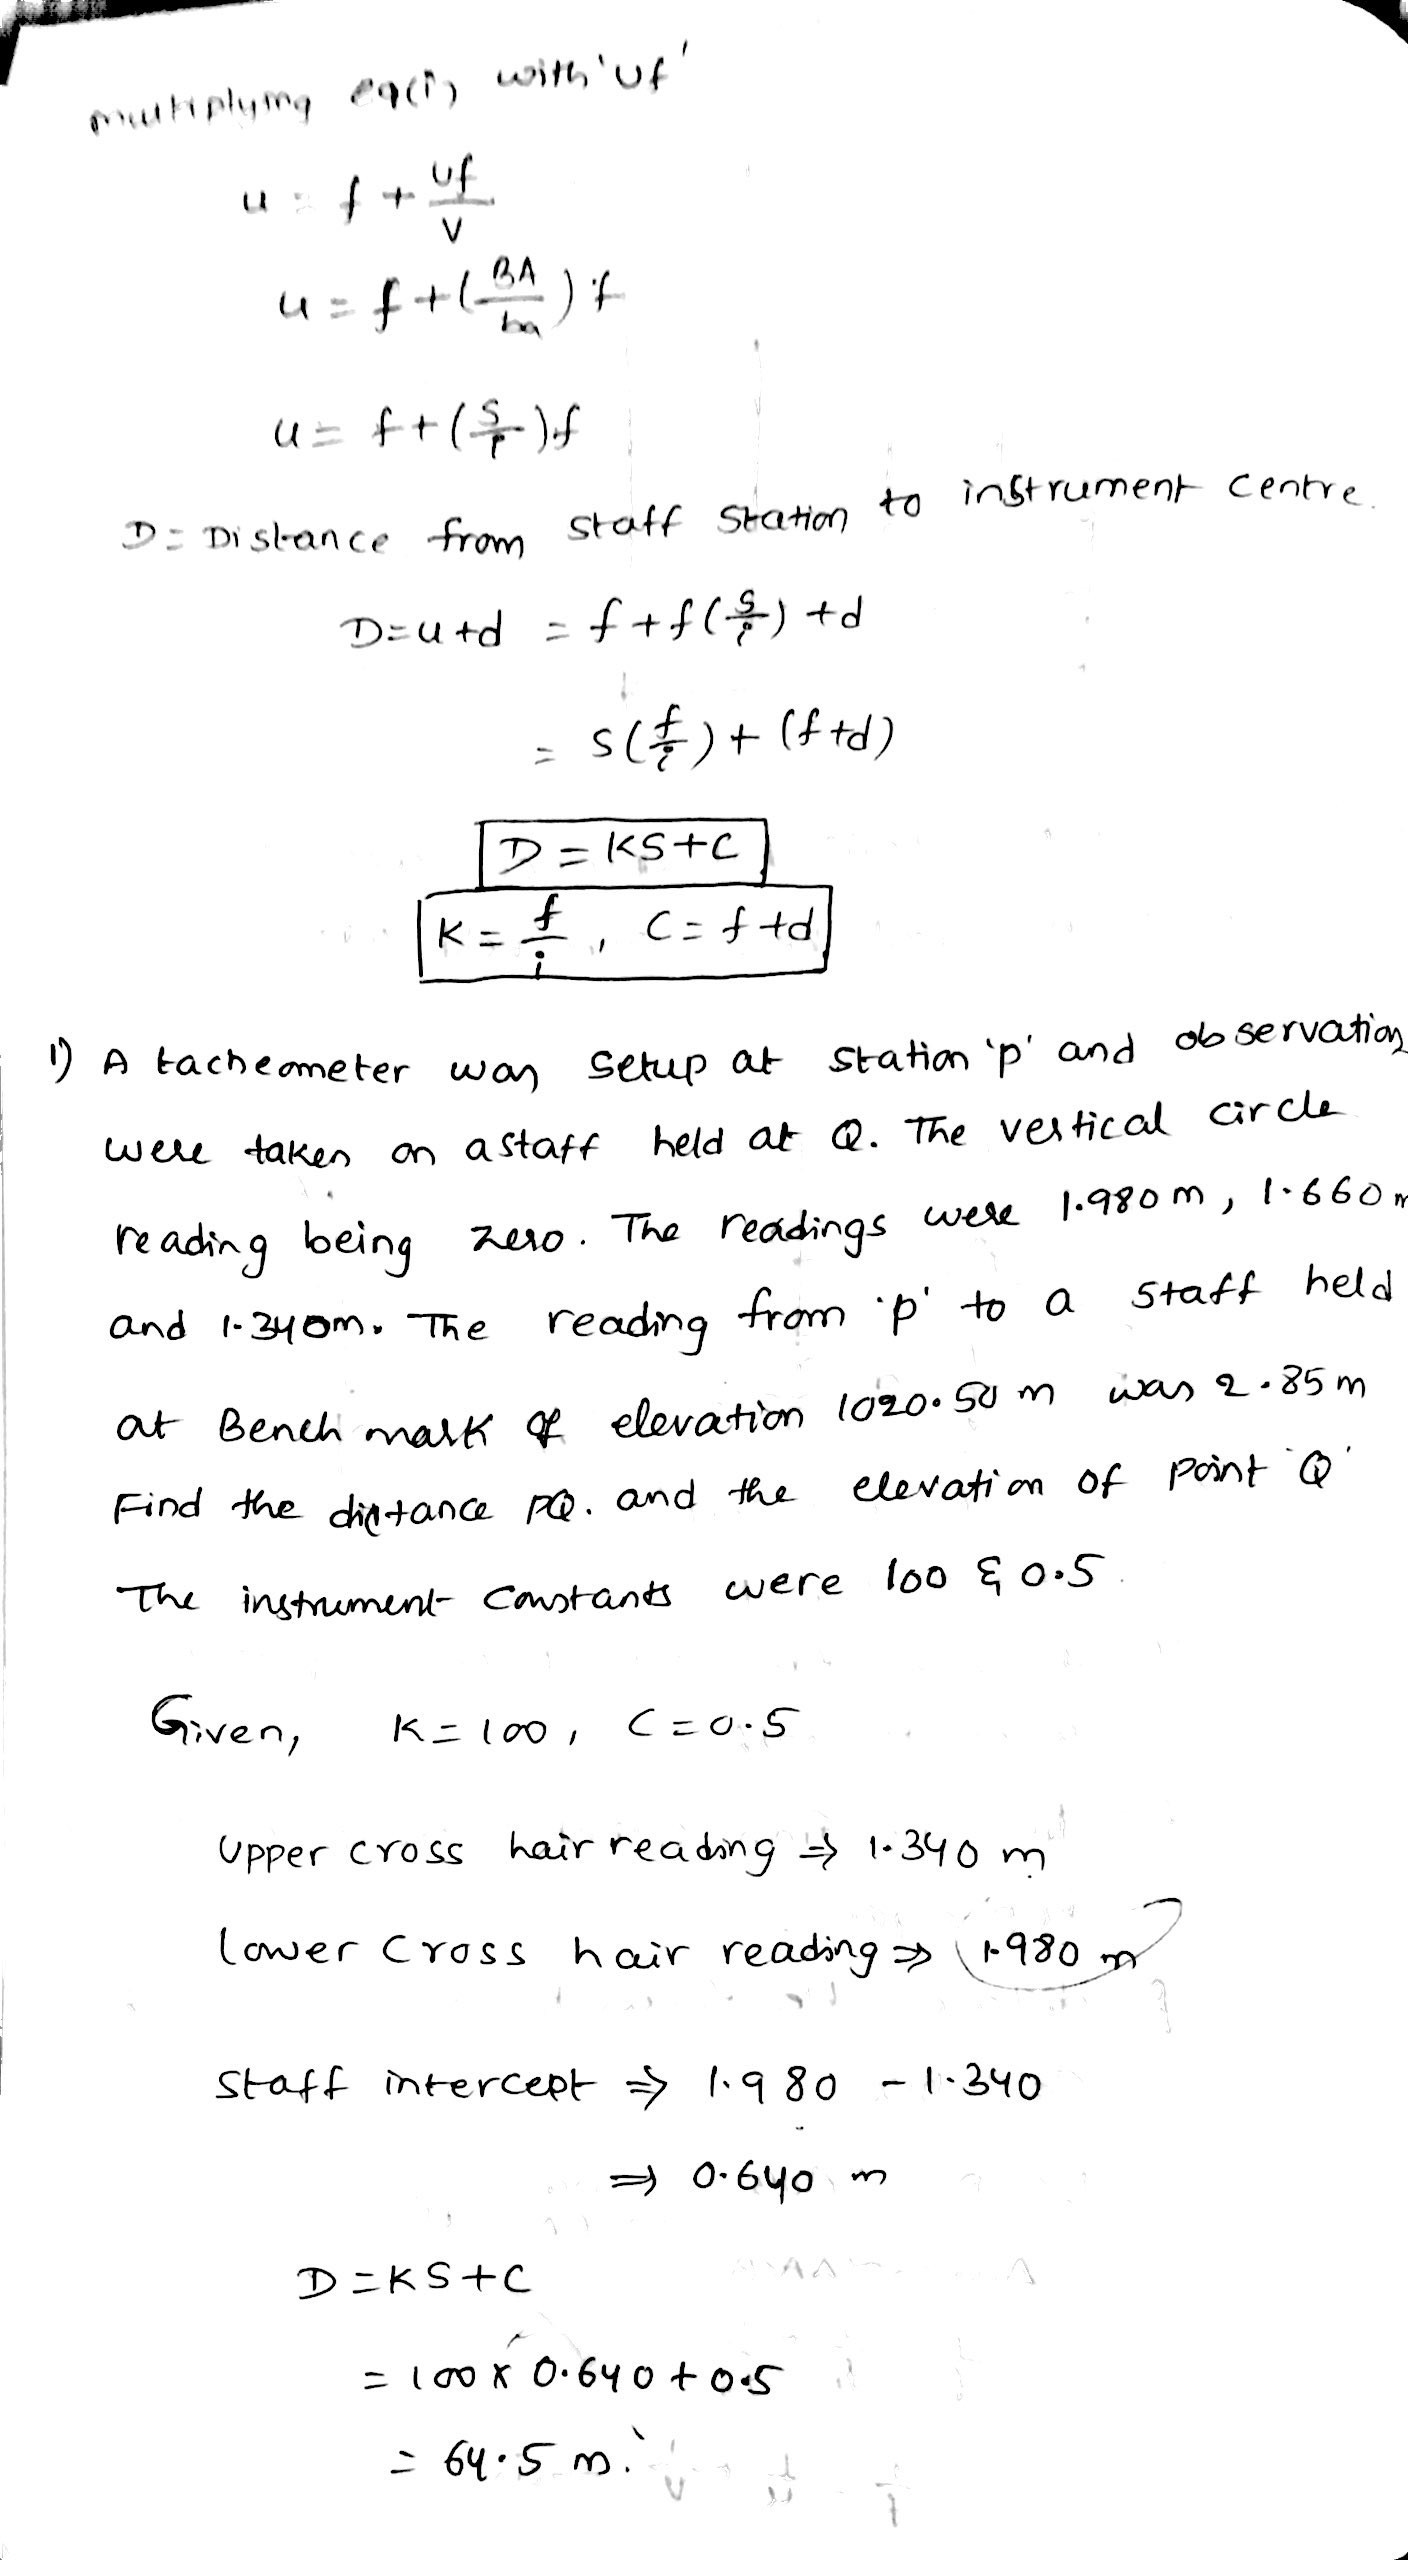 multiplying eq(i) with 'uf'
u = f + uf/v
u = f + (BA/ba) f
u = f + (S/i) f
D = Distance from staff station to instrument centre.
D = u + d = f + f(S/i) + d
= S(f/i) + (f+d)
D = KS + C
K = f/i , C = f + d
1) A tacheometer was setup at station 'p' and observation
were taken on a staff held at Q. The vertical circle
reading being zero. The readings were 1.980 m, 1.660 m
and 1.340m. The reading from 'p' to a staff held
at Bench mark of elevation 1020.50 m was 2.85 m
Find the distance PQ. and the elevation of point 'Q'
The instrument constants were 100 & 0.5.
Given, K = 100, C = 0.5
Upper cross hair reading ⇒ 1.340 m
lower cross hair reading ⇒ 1.980 m
Staff intercept ⇒ 1.980 - 1.340
⇒ 0.640 m
D = KS + C
= 100 x 0.640 + 0.5
= 64.5 m.